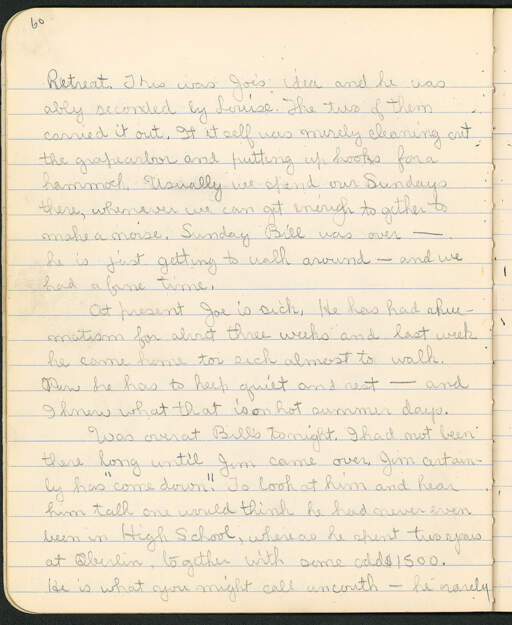 60
Retreat. This was Joe's idea and he was
ably seconded by Louise. The two of them
carried it out. It itself was merely cleaning out
the grapearbor and putting up hooks for a
hammock. Usually we spend our Sundays
there, whenever we can get enough together to
make a noise. Sunday Bill was over —
he is just getting to walk around — and we
had a fine time.
At present Joe is sick. He has had rheu-
matism for about three weeks and last week
he came home too sick almost to walk.
Now he has to keep quiet and rest — and
I know what that is on hot summer days.
Was over at Bill's tonight. I had not been
there long until Jim came over. Jim certain-
ly has "come down". To look at him and hear
him talk one would think he had never even
been in High School, whereas he spent two years
at Oberlin, together with some odd $1500.
He is what you might call uncouth — he rarely